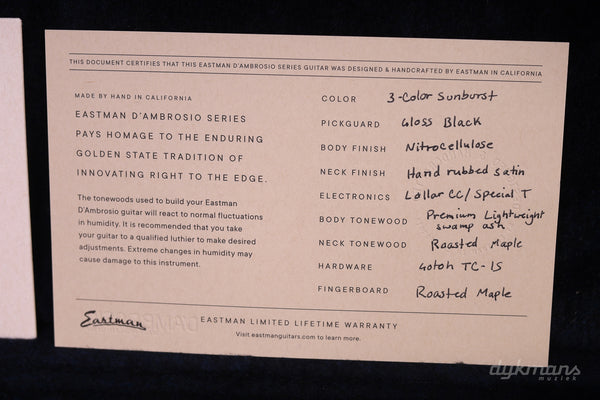 THIS DOCUMENT CERTIFIES THAT THIS EASTMAN D'AMBROSIO SERIES GUITAR WAS DESIGNED & HANDCRAFTED BY EASTMAN IN CALIFORNIA
MADE BY HAND IN CALIFORNIA
EASTMAN D'AMBROSIO SERIES
PAYS HOMAGE TO THE ENDURING
GOLDEN STATE TRADITION OF
INNOVATING RIGHT TO THE EDGE.
The tonewoods used to build your Eastman
D'Ambrosio guitar will react to normal fluctuations
in humidity. It is recommended that you take
your guitar to a qualified luthier to make desired
adjustments. Extreme changes in humidity may
cause damage to this instrument.
COLOR 3-Color Sunburst
PICKGUARD Gloss Black
BODY FINISH Nitrocellulose
NECK FINISH Hand rubbed satin
ELECTRONICS Lollar CC/Special T
BODY TONEWOOD Premium Lightweight
swamp ash
NECK TONEWOOD Roasted Maple
HARDWARE Gotoh TC-1S
FINGERBOARD Roasted Maple
Eastman
EASTMAN LIMITED LIFETIME WARRANTY
Visit eastmanguitars.com to learn more.
dijkmans
muziek